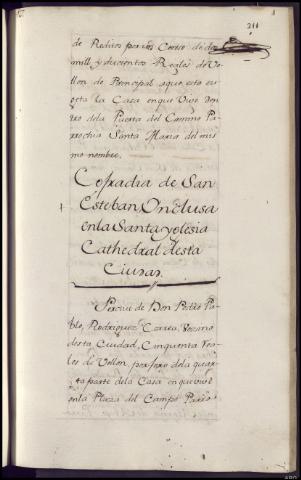 211
de Reditos por un Censo de dos
mill, y duzientos Reales de Ve-
llon de Principal aque esta su
geta la Casa en que Vive den
tro dela Puerta del Camino Pa
rrochia Santa Maria del mis
mo nombre.
Cofradia de San
Esteban, Onclusa
enla Santa yglesia
Cathedral desta
Ciudad.
Percive de Don Pedro Pa-
blo, Rodriguez Correa, Vecino
desta Ciudad, Cinquenta Rea-
les de Vellon, por foro dela quar-
ta parte dela Casa en que vive
enla Plaza del Campo Parro